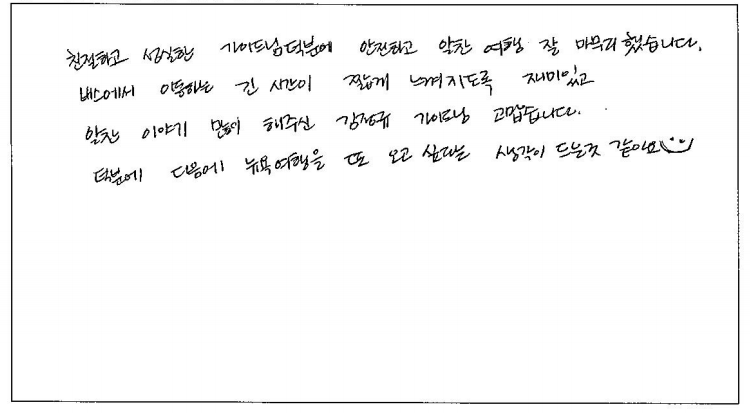 친절하고 성실한 가이드님 덕분에 안전하고 알찬 여행 잘 마무리 했습니다.
버스에서 이동하는 긴 시간이 짧게 느껴지도록 재미있고
알찬 이야기 많이 해주신 강정규 가이드님 고맙습니다.
덕분에 다음에 뉴욕여행을 또 오고 싶다는 생각이 드는것 같아요